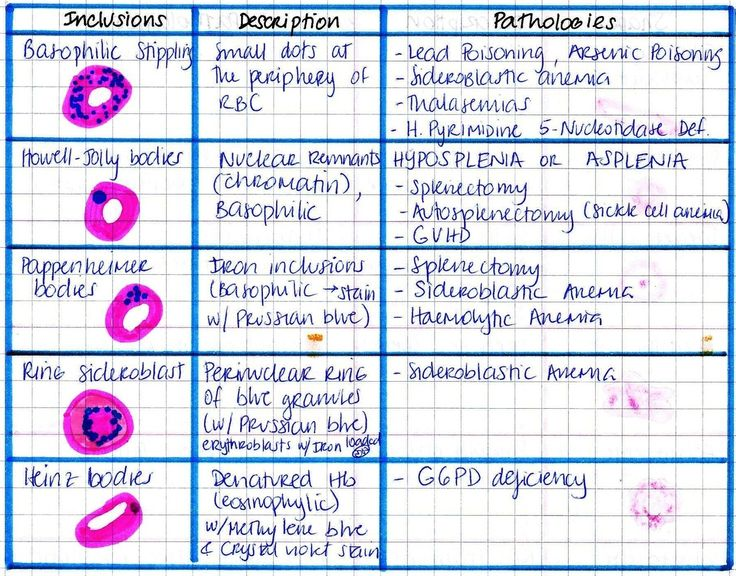 Inclusions
Description
Pathologies
Basophilic Stippling
Small dots at
the periphery of
RBC
- Lead Poisoning, Arsenic Poisoning
- Sideroblastic anemia
- Thalasemias
- H. Pyrimidine 5-Nucleotidase Def.
Howell-Jolly bodies
Nuclear Remnants
(chromatin),
Basophilic
HYPOSPLENIA OR ASPLENIA
- Splenectomy
- Autosplenectomy (sickle cell anemia)
- GVHD
Pappenheimer
bodies
Iron inclusions
(Basophilic → stain
w/ Prussian blue)
- Splenectomy
- Sideroblastic Anemia
- Haemolytic Anemia
Ring sideroblast
Perinuclear ring
of blue granules
(w/ Prussian blue)
erythroblasts w/ Iron loaded
- Sideroblastic Anemia
Heinz bodies
Denatured Hb
(eosinophylic)
w/Methylene blue
& Crystal violet stain
- G6PD deficiency